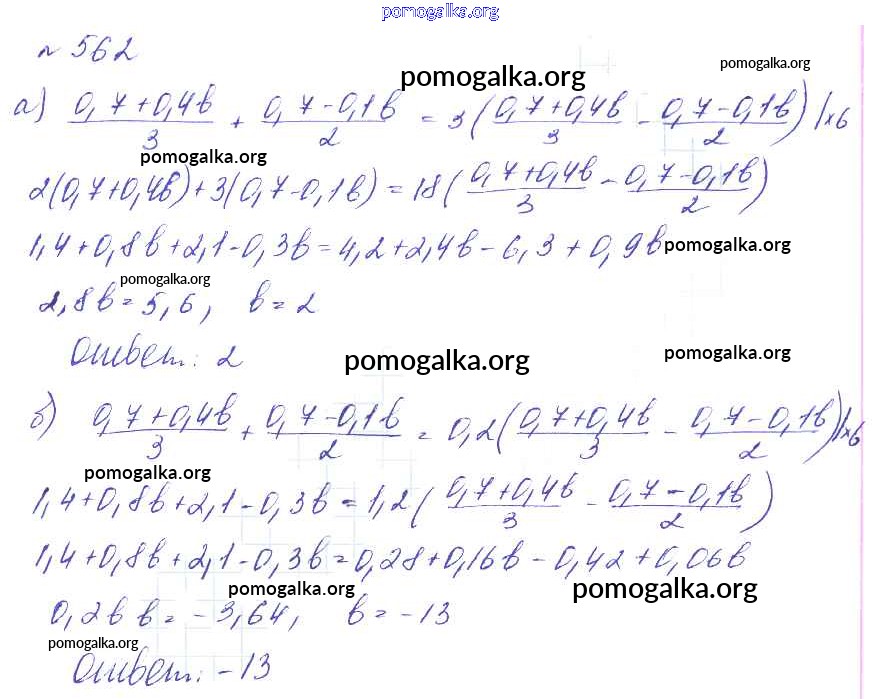 pomogalka.org
№ 562
pomogalka.org
pomogalka.org
а) (0,7+0,4b)/3 + (0,7-0,1b)/2 = 3((0,7+0,4b)/3 - (0,7-0,1b)/2) |×6
pomogalka.org
2(0,7+0,4b)+3(0,7-0,1b)=18((0,7+0,4b)/3 - (0,7-0,1b)/2)
1,4+0,8b+2,1-0,3b=4,2+2,4b-6,3+0,9b pomogalka.org
pomogalka.org
2,8b=5,6, b=2
Ответ: 2 pomogalka.org pomogalka.org
б) (0,7+0,4b)/3 + (0,7-0,1b)/2 = 0,2((0,7+0,4b)/3 - (0,7-0,1b)/2) |×6
pomogalka.org pomogalka.org
1,4+0,8b+2,1-0,3b=1,2((0,7+0,4b)/3 - (0,7-0,1b)/2)
1,4+0,8b+2,1-0,3b=0,28+0,16b-0,42+0,06b
pomogalka.org pomogalka.org
0,2b b=-3,64, b=-13
pomogalka.org
Ответ: -13